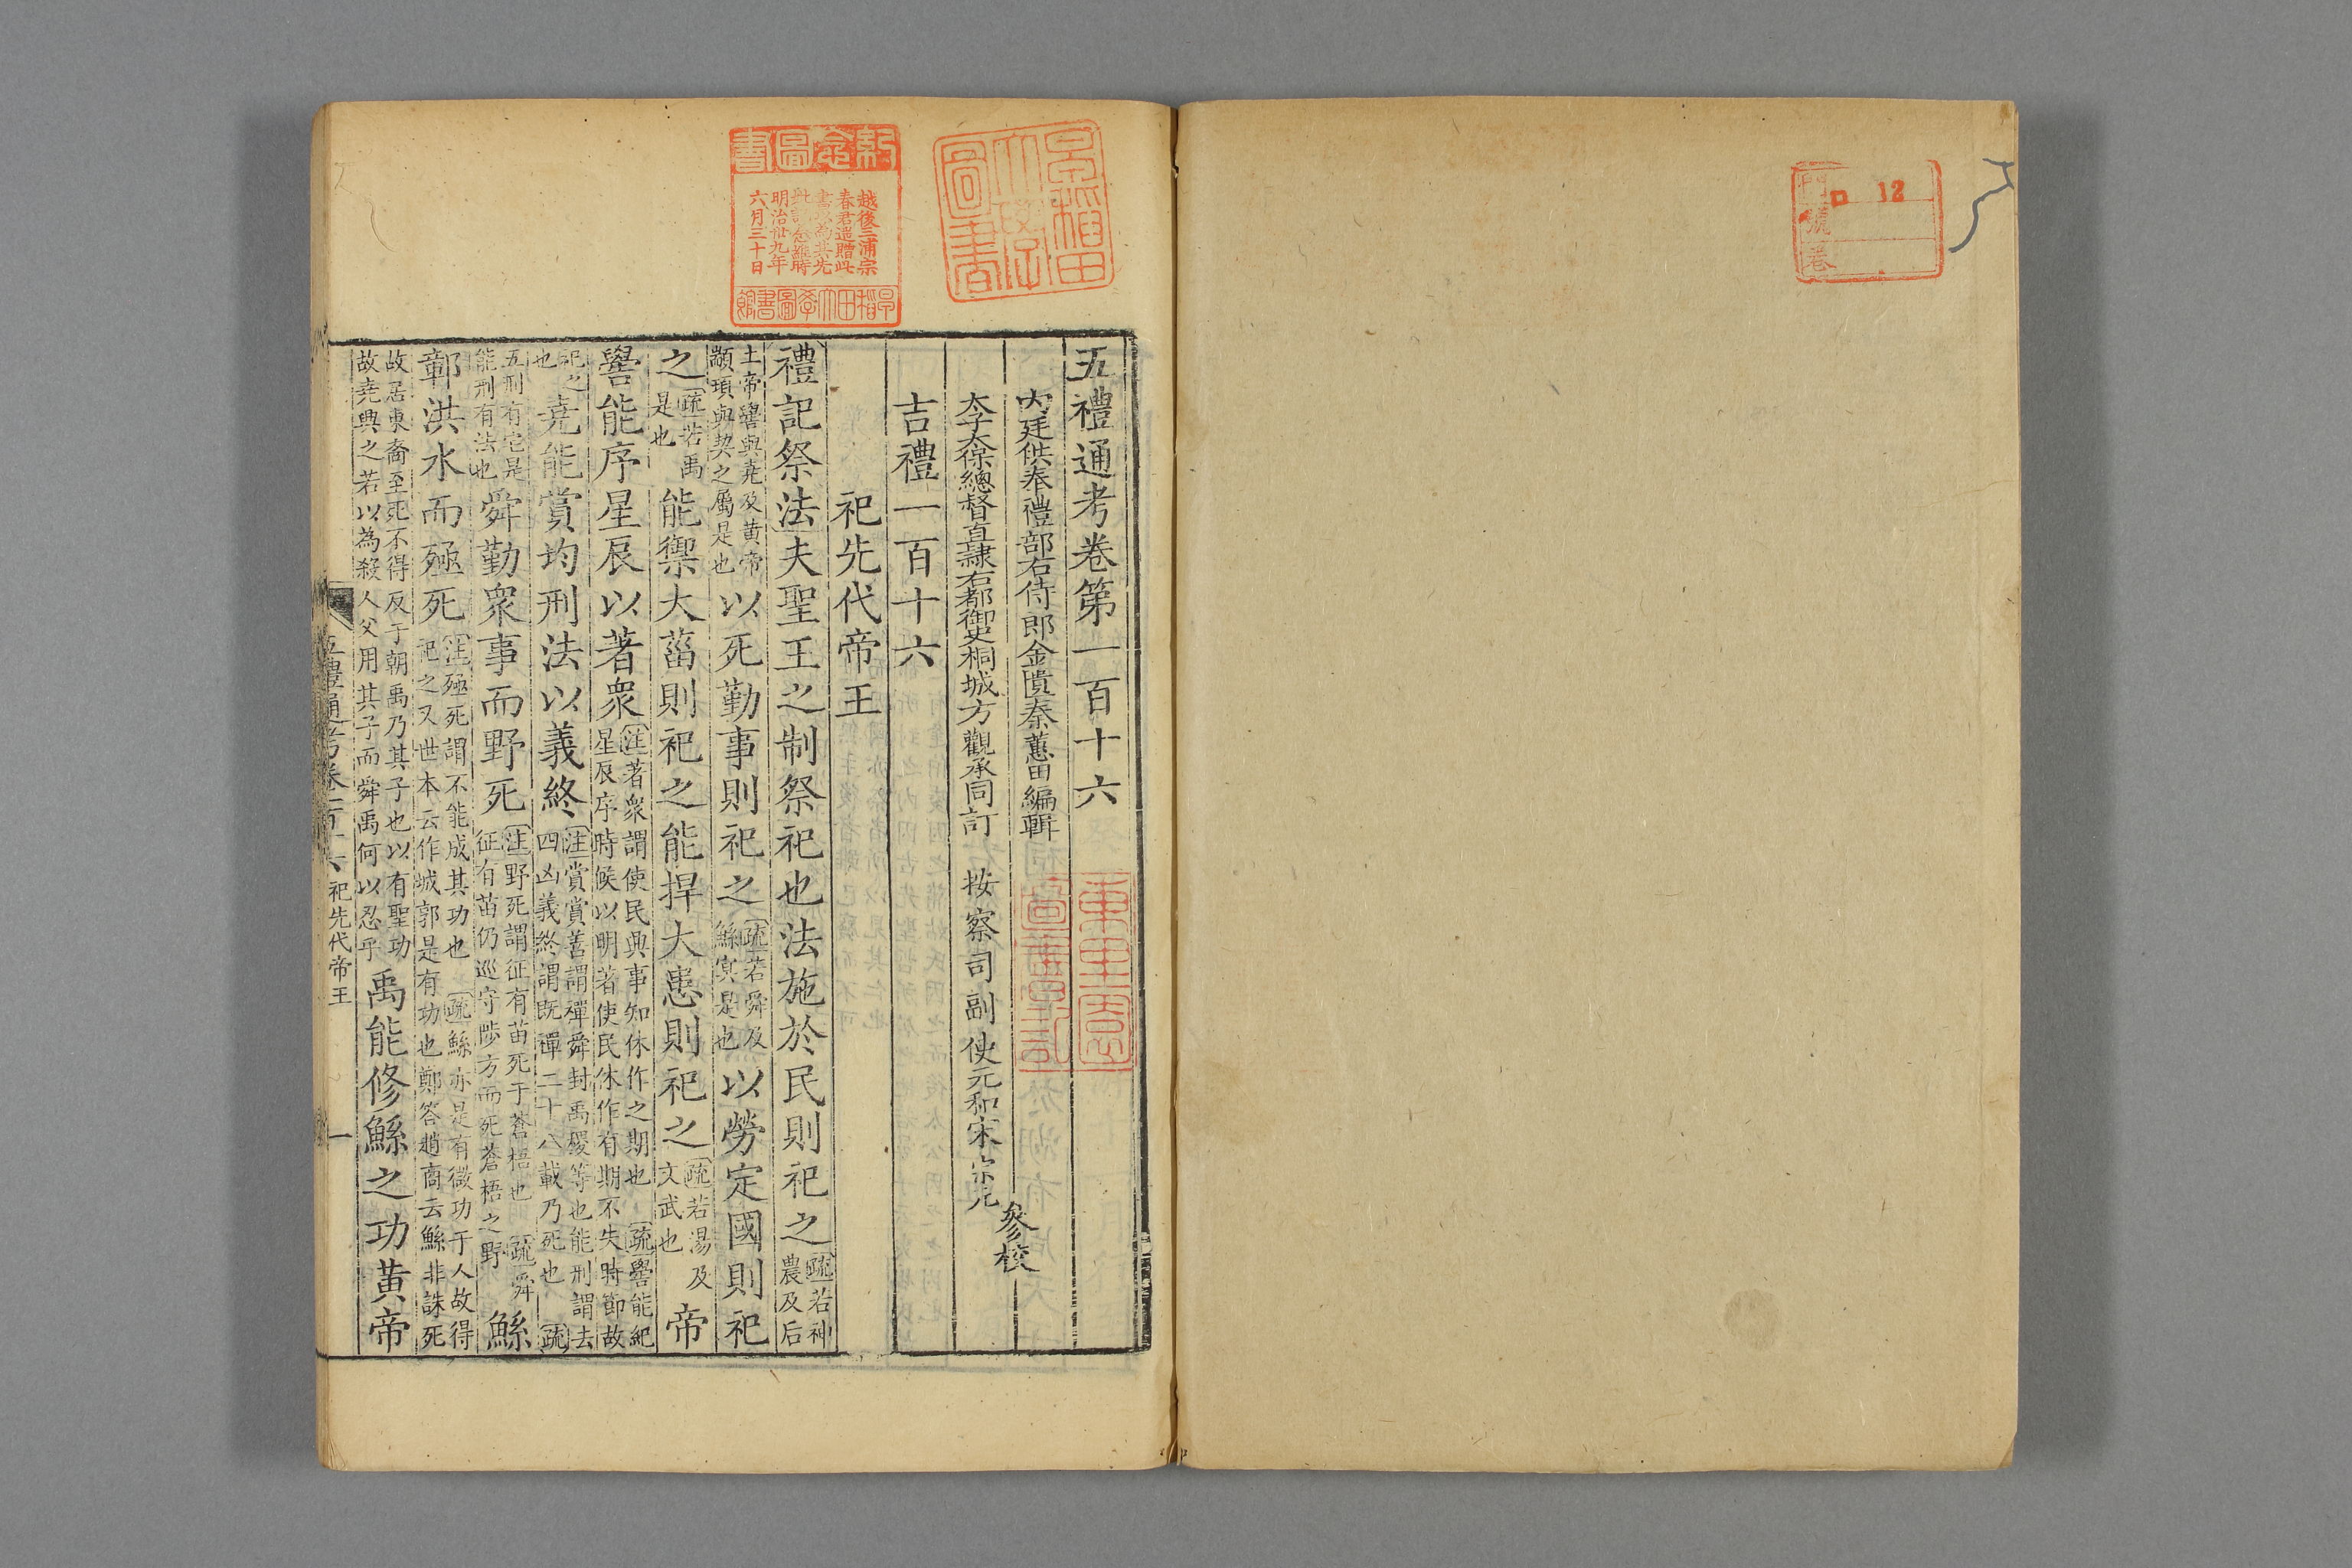 門 ロ 12
號
卷
早稲田大學圖書
紀念圖書
越後三浦宗
春君遺贈此
書以為其先
明治卅九年
六月三十日
早稻田大學圖書館
五禮通考卷第一百十六
內廷供奉禮部右侍郎金匱秦蕙田編輯
太子太保總督直隸右都御史桐城方觀承同訂 按察司副使元和宋宗元 參校
吉禮一百十六
祀先代帝王
禮記祭法夫聖王之制祭祀也法施於民則祀之 疏若神農及后
土帝嚳與堯及黃帝顓頊與契之屬是也 以死勤事則祀之 疏若舜及鯀冥是也 以勞定國則祀
之 疏若禹是也 能禦大菑則祀之能捍大患則祀之 疏若湯及文武也 帝
嚳能序星辰以著衆 注著衆謂使民興事知休作之期也 疏嚳能紀星辰序時候以明著使民休作有期不失時節故
祀之也 堯能賞均刑法以義終 注賞賞善謂禪舜封禹稷等也能刑謂去四凶義終謂既禪二十八載乃死也 疏
五刑有宅是能刑有法也 舜勤衆事而野死 注野死謂征有苗死于蒼梧也 疏舜征有苗仍巡守陟方而死蒼梧之野 鯀
鄣洪水而殛死 注殛死謂不能成其功也 疏鯀亦是有微功于人故得祀之又世本云作城郭是有功也鄭答趙商云鯀非誅死
故居東裔至死不得反于朝禹乃其子也以有聖功故堯興之若以為殺人父用其子而舜禹何以忍乎 禹能修鯀之功黃帝
五禮通考卷一百十六 祀先代帝王 一